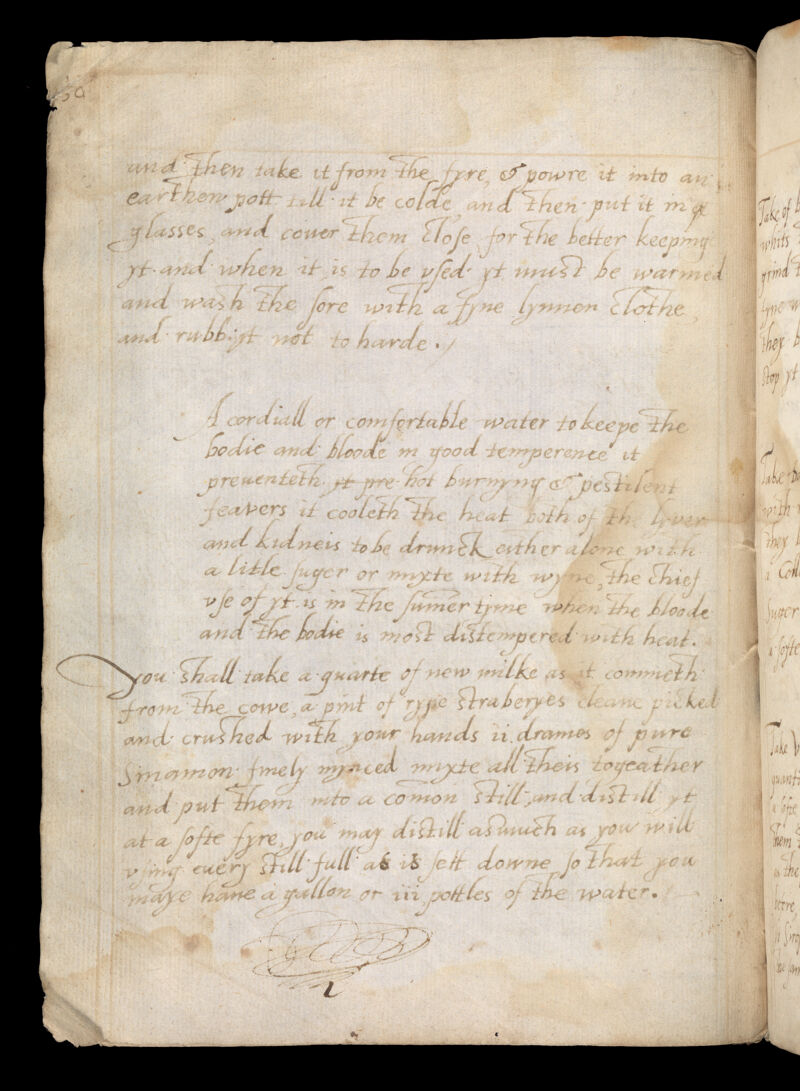 and then take it from the fyre, & powre it into an
earthen pott till it be colde, and then put it in
glasses, and couer them close, for the better keeping
yt and when it is to be vsed yt must be warmed
and wash the sore with a fyne lynnen clothe,
and rubb yt not to harde.
A cordiall or comfortable water to keepe the
bodie and bloode in good temperence it
preuenteth yt pre hot burnyng & pestilent
feavers it cooleth the heat both of the lyver
and kidneis to be drunck either alone with
a litle suger or myxte with wyne, the chief
vse of yt is in the sumer tyme when the bloode
and the bodie is most distempered with heat.
You shall take a quarte of new milke as it commeth
from the cowe, a pint of rype straberyes cleane picked
and crushed with your hands ii drames of pure
Sinamon finely mynced myxte all theis togeather
and put them into a comon still, and distill yt
at a softe fyre, you may distill asmuch as you will
vsing euery still full as is sett downe, so that you
maye haue a gallon or iii pottles of the water.
Take of
whits
grind
fyne w
they b
stop yt
Take
with
they
a
Suger
a softe
Take
quanti
a softe
them